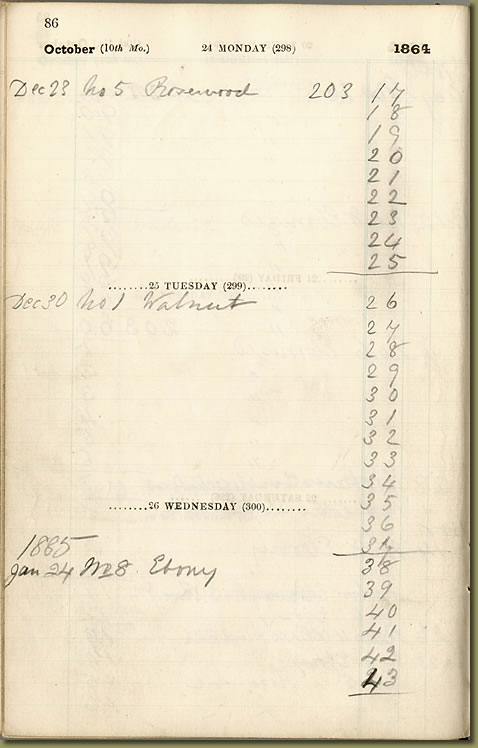 86
October (10th Mo.) 24 MONDAY (298) 1864
Dec 23 No 5 Rosewood 203 17
18
19
20
21
22
23
24
25
25 TUESDAY (299)
Dec 30 No 1 Walnut 26
27
28
29
30
31
32
33
34
35
26 WEDNESDAY (300)
36
37
1865
38
Jan 24 No 8 Ebony
39
40
41
42
43